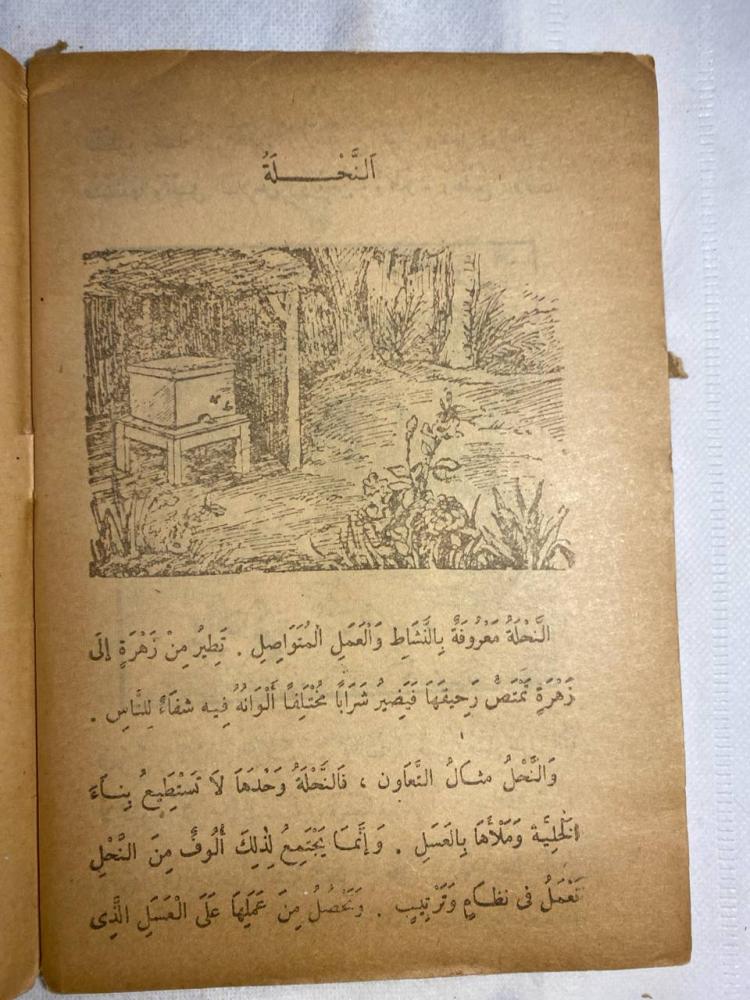 اَلنَّحْلَةُ
النَّحْلَةُ مَعْرُوفَةٌ بِالنَّشَاطِ وَالْعَمَلِ الْمُتَوَاصِلِ . تَطِيرُ مِنْ زَهْرَةٍ إلَى
زَهْرَةٍ تَمْتَصُّ رَحِيقَهَا فَيَصِيرُ شَرَابًا مُخْتَلِفًا أَلْوَانُهُ فِيهِ شفَاءٌ لِلنَّاسِ .
وَالنَّحْلُ مثَالُ التَّعَاوُن ، فَالنَّحْلَةُ وَحْدَهَا لاَ تَسْتَطِيعُ بِنَاءَ
الْخَلِيَّة وَمَلْأَهَا بِالْعَسَلِ . وَإنَّمَا يَجْتَمِعُ لِذٰلِكَ أُلُوفٌ مِنَ النَّحْلِ
تَعْمَلُ فى نظَامٍ وَتَرْتِيبٍ . وَنَحْصُلُ مِنَ عَمَلِهَا عَلَى الْعَسَلِ الَّذِى